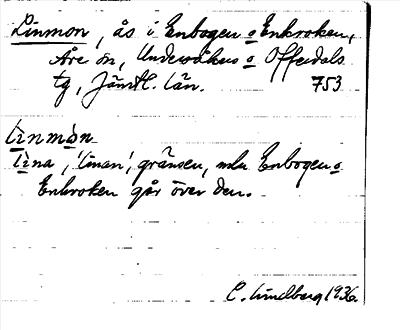 Linmon, ås i Enbogen o Enkroken,
Åre sn, Undersåkers o Offerdals
tg, Jämtl. län. 753
linmòn
lìna, 'linan', gränsen, mln Enbogen o
Enkroken går över den.
C. Lundberg 1936.